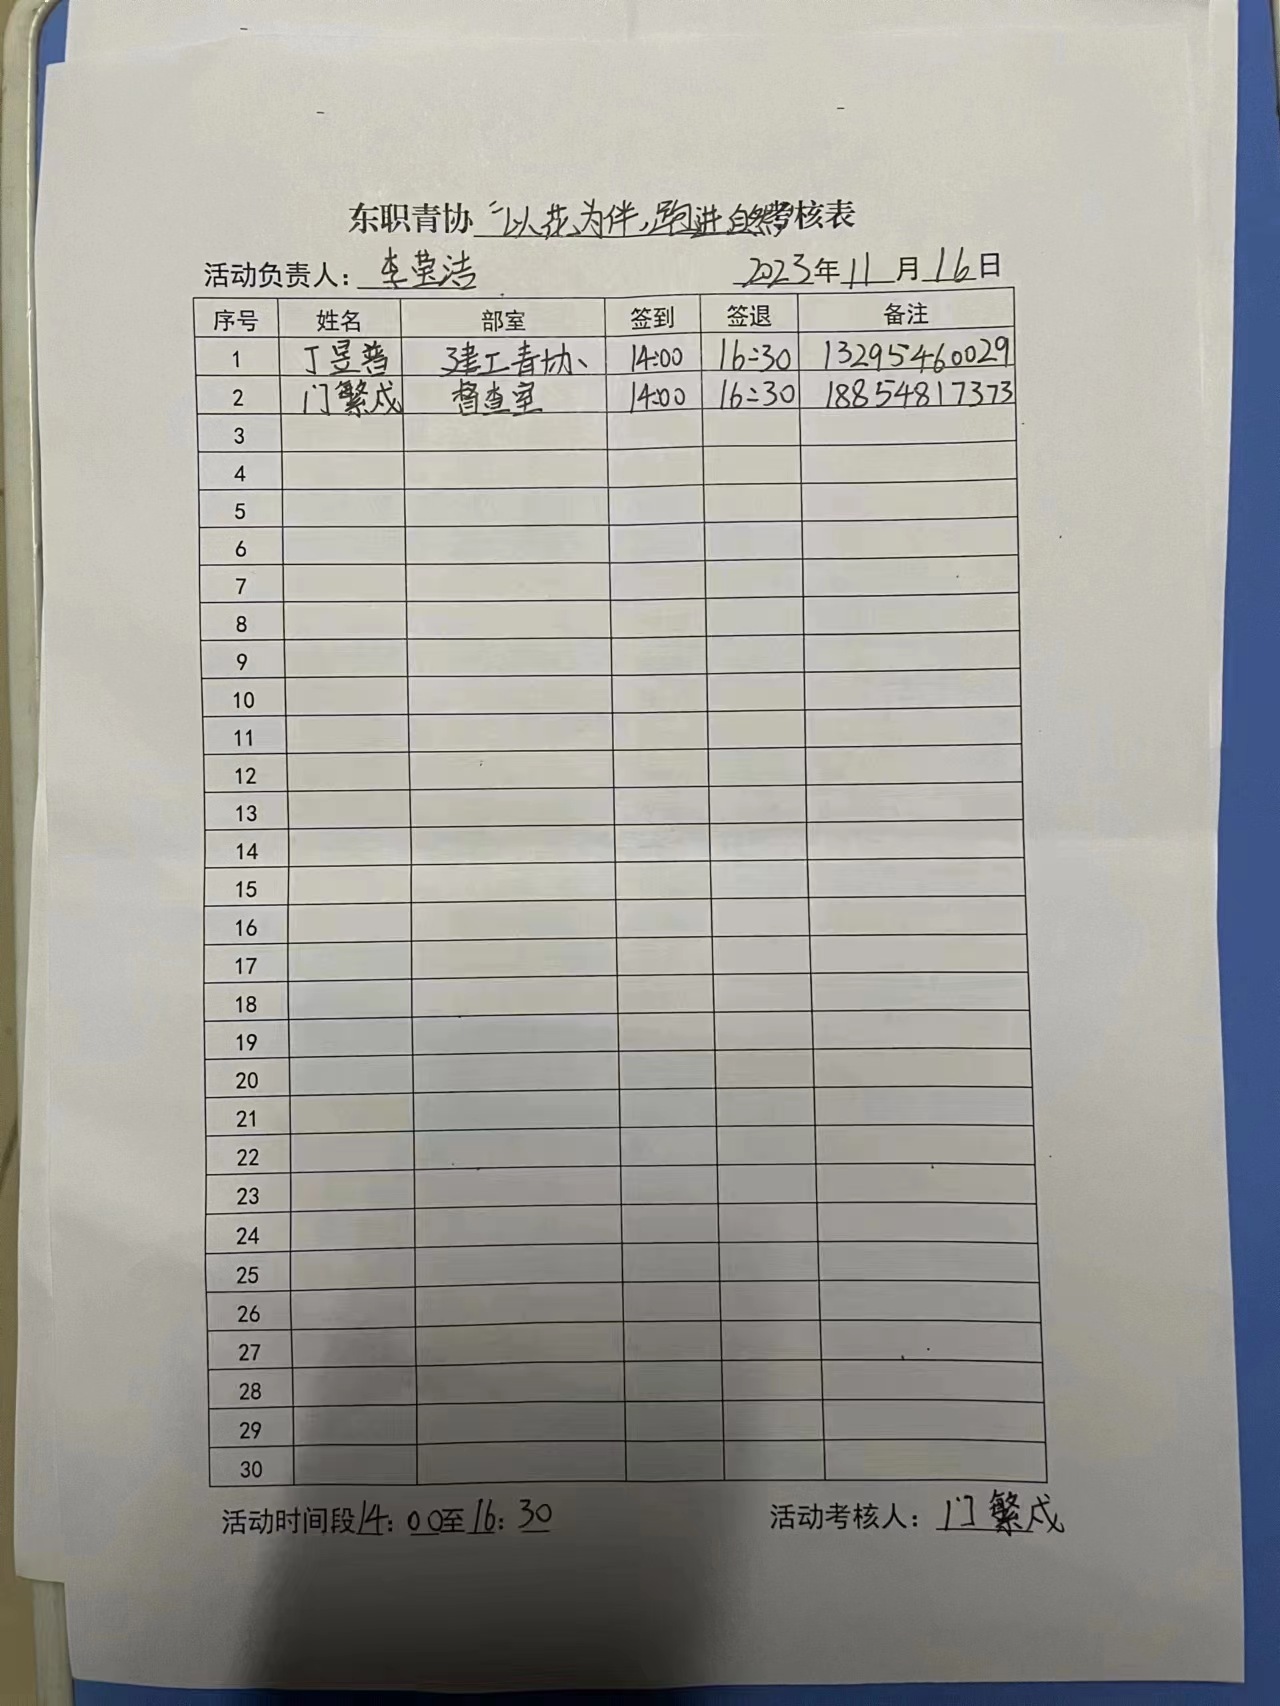 东职青协“以花为伴，跑进自然考核表
活动负责人：李莹洁 2023年11月16日
序号 姓名 部室 签到 签退 备注
1 丁昱普 建工青协、 14:00 16:30 13295460029
2 门繁成 督查室 14:00 16:30 18854817373
3
4
5
6
7
8
9
10
11
12
13
14
15
16
17
18
19
20
21
22
23
24
25
26
27
28
29
30
活动时间段14：00至16：30 活动考核人：门繁成